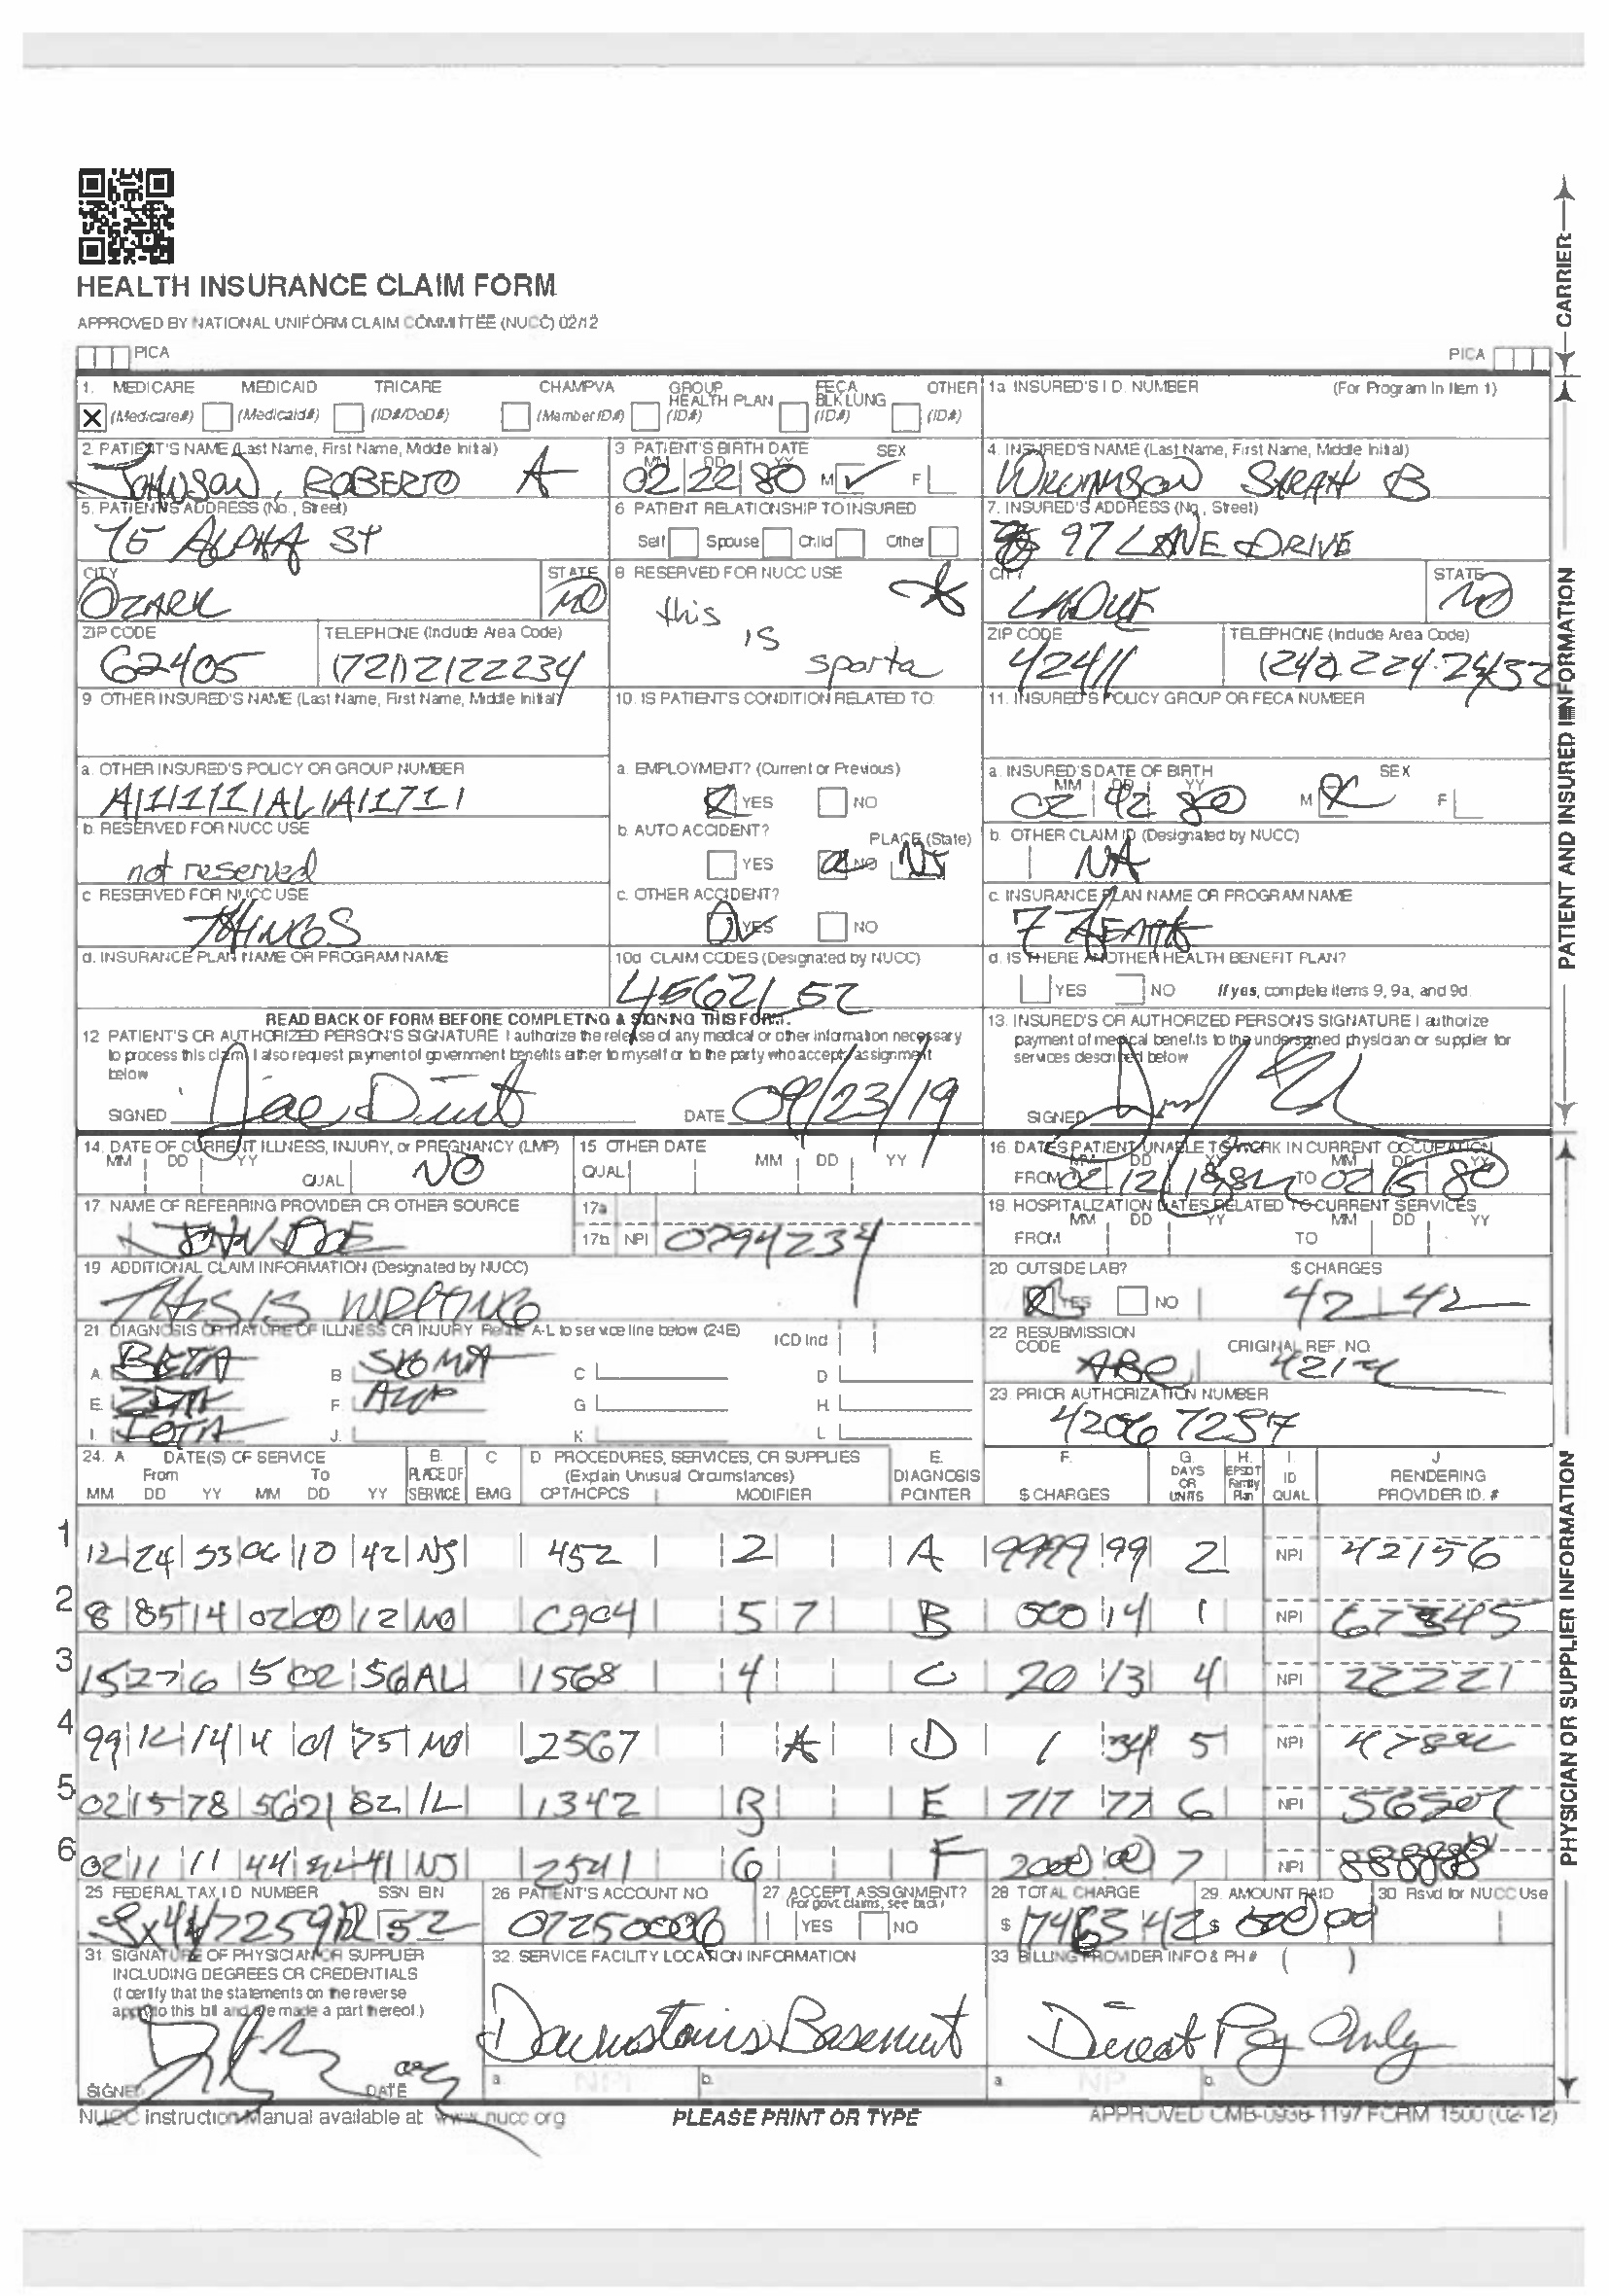 HEALTH INSURANCE CLAIM FORM
APPROVED BY NATIONAL UNIFORM CLAIM COMMITTEE (NUCC) 02/12
PICA PICA
CARRIER
1. MEDICARE MEDICAID TRICARE CHAMPVA GROUP HEALTH PLAN FECA BLK LUNG OTHER
X (Medicare#) (Medicaid#) (ID#/DoD#) (Member ID#) (ID#) (ID#) (ID#)
1a INSURED'S I D. NUMBER (For Program In Item 1)
2. PATIENT'S NAME (Last Name, First Name, Middle Initial)
JOHNSON, ROBERTO A
3 PATIENT'S BIRTH DATE SEX
MM DD YY
02 22 80 M F
4. INSURED'S NAME (Last Name, First Name, Middle Initial)
SARAH B
5. PATIENT'S ADDRESS (No., Street)
75 ALPHA ST
6 PATIENT RELATIONSHIP TO INSURED
Self Spouse Child Other
7. INSURED'S ADDRESS (No., Street)
97 LANE DRIVE
CITY STATE
OZARK MO
8 RESERVED FOR NUCC USE
this
is
sparta
CITY STATE
LADUE MO
ZIP CODE TELEPHONE (Include Area Code)
62405 (721)2122234
ZIP CODE TELEPHONE (Include Area Code)
42411
9 OTHER INSURED'S NAME (Last Name, First Name, Middle Initial)
10. IS PATIENT'S CONDITION RELATED TO:
11. INSURED'S POLICY GROUP OR FECA NUMBER
a. OTHER INSURED'S POLICY OR GROUP NUMBER
a. EMPLOYMENT? (Current or Previous)
YES NO
a. INSURED'S DATE OF BIRTH SEX
MM DD YY
02 42 80 M F
b. RESERVED FOR NUCC USE
not reserved
b. AUTO ACCIDENT? PLACE (State)
YES NO NJ
b. OTHER CLAIM ID (Designated by NUCC)
NA
c. RESERVED FOR NUCC USE
THINGS
c. OTHER ACCIDENT?
YES NO
c. INSURANCE PLAN NAME OR PROGRAM NAME
d. INSURANCE PLAN NAME OR PROGRAM NAME
10d CLAIM CODES (Designated by NUCC)
45621 52
d. IS THERE ANOTHER HEALTH BENEFIT PLAN?
YES NO If yes, complete items 9, 9a, and 9d.
PATIENT AND INSURED INFORMATION
READ BACK OF FORM BEFORE COMPLETING & SIGNING THIS FORM.
12 PATIENT'S OR AUTHORIZED PERSON'S SIGNATURE I authorize the release of any medical or other information necessary
to process this claim. I also request payment of government benefits either to myself or to the party who accepts assignment
below
SIGNED DATE 09/23/19
13. INSURED'S OR AUTHORIZED PERSON'S SIGNATURE I authorize
payment of medical benefits to the undersigned physician or supplier for
services described below
SIGNED
14. DATE OF CURRENT ILLNESS, INJURY, or PREGNANCY (LMP)
MM DD YY QUAL NO
15 OTHER DATE
QUAL MM DD YY
16. DATES PATIENT UNABLE TO WORK IN CURRENT OCCUPATION
MM DD YY MM DD YY
FROM TO
17. NAME OF REFERRING PROVIDER OR OTHER SOURCE
DOE
17a
17b NPI 0794234
18. HOSPITALIZATION DATES RELATED TO CURRENT SERVICES
MM DD YY MM DD YY
FROM TO
19 ADDITIONAL CLAIM INFORMATION (Designated by NUCC)
THIS IS WRITING
20 OUTSIDE LAB? $ CHARGES
YES NO 42 42
21. DIAGNOSIS OR NATURE OF ILLNESS OR INJURY Relate A-L to service line below (24E) ICD Ind
A. BETA B SIGMA C D
E. ZETA F. G H.
I. IOTA J. K L
22 RESUBMISSION CODE ORIGINAL REF. NO.
ABC
23 PRIOR AUTHORIZATION NUMBER
42067257
24. A DATE(S) OF SERVICE B. PLACE OF SERVICE C EMG D PROCEDURES, SERVICES, OR SUPPLIES E. DIAGNOSIS POINTER F. $ CHARGES G. DAYS OR UNITS H. EPSDT Family Plan I. ID QUAL J RENDERING PROVIDER ID. #
From To (Explain Unusual Circumstances)
MM DD YY MM DD YY CPT/HCPCS MODIFIER
1 12 24 53 06 10 42 NJ 452 2 A 9999 99 2 NPI 42156
2 8 85 14 02 00 12 MO C904 5 7 B 500 14 1 NPI 67345
3 15 27 6 5 02 56 AL 1568 4 C 20 13 4 NPI 22221
4 99 12 14 4 01 75 MO 2567 A D 1 34 5 NPI
5 02 15 78 56 21 82 IL 1342 B E 717 77 6 NPI
6 02 11 11 44 41 NJ 2541 6 F 2000 00 7 NPI 888888
PHYSICIAN OR SUPPLIER INFORMATION
25 FEDERAL TAX I D NUMBER SSN EIN
26 PATIENT'S ACCOUNT NO
27 ACCEPT ASSIGNMENT?
(For govt. claims, see back)
YES NO
28 TOTAL CHARGE
$ 42
29. AMOUNT PAID
$ 500 00
30 Rsvd for NUCC Use
31. SIGNATURE OF PHYSICIAN OR SUPPLIER
INCLUDING DEGREES OR CREDENTIALS
(I certify that the statements on the reverse
apply to this bill and are made a part thereof.)
SIGNED DATE
32. SERVICE FACILITY LOCATION INFORMATION
Downstairs Basement
a. NPI b.
33 BILLING PROVIDER INFO & PH # ( )
Direct Pay Only
a NPI b.
NUCC Instruction Manual available at www.nucc.org
PLEASE PRINT OR TYPE
APPROVED OMB-0938-1197 FORM 1500 (02-12)